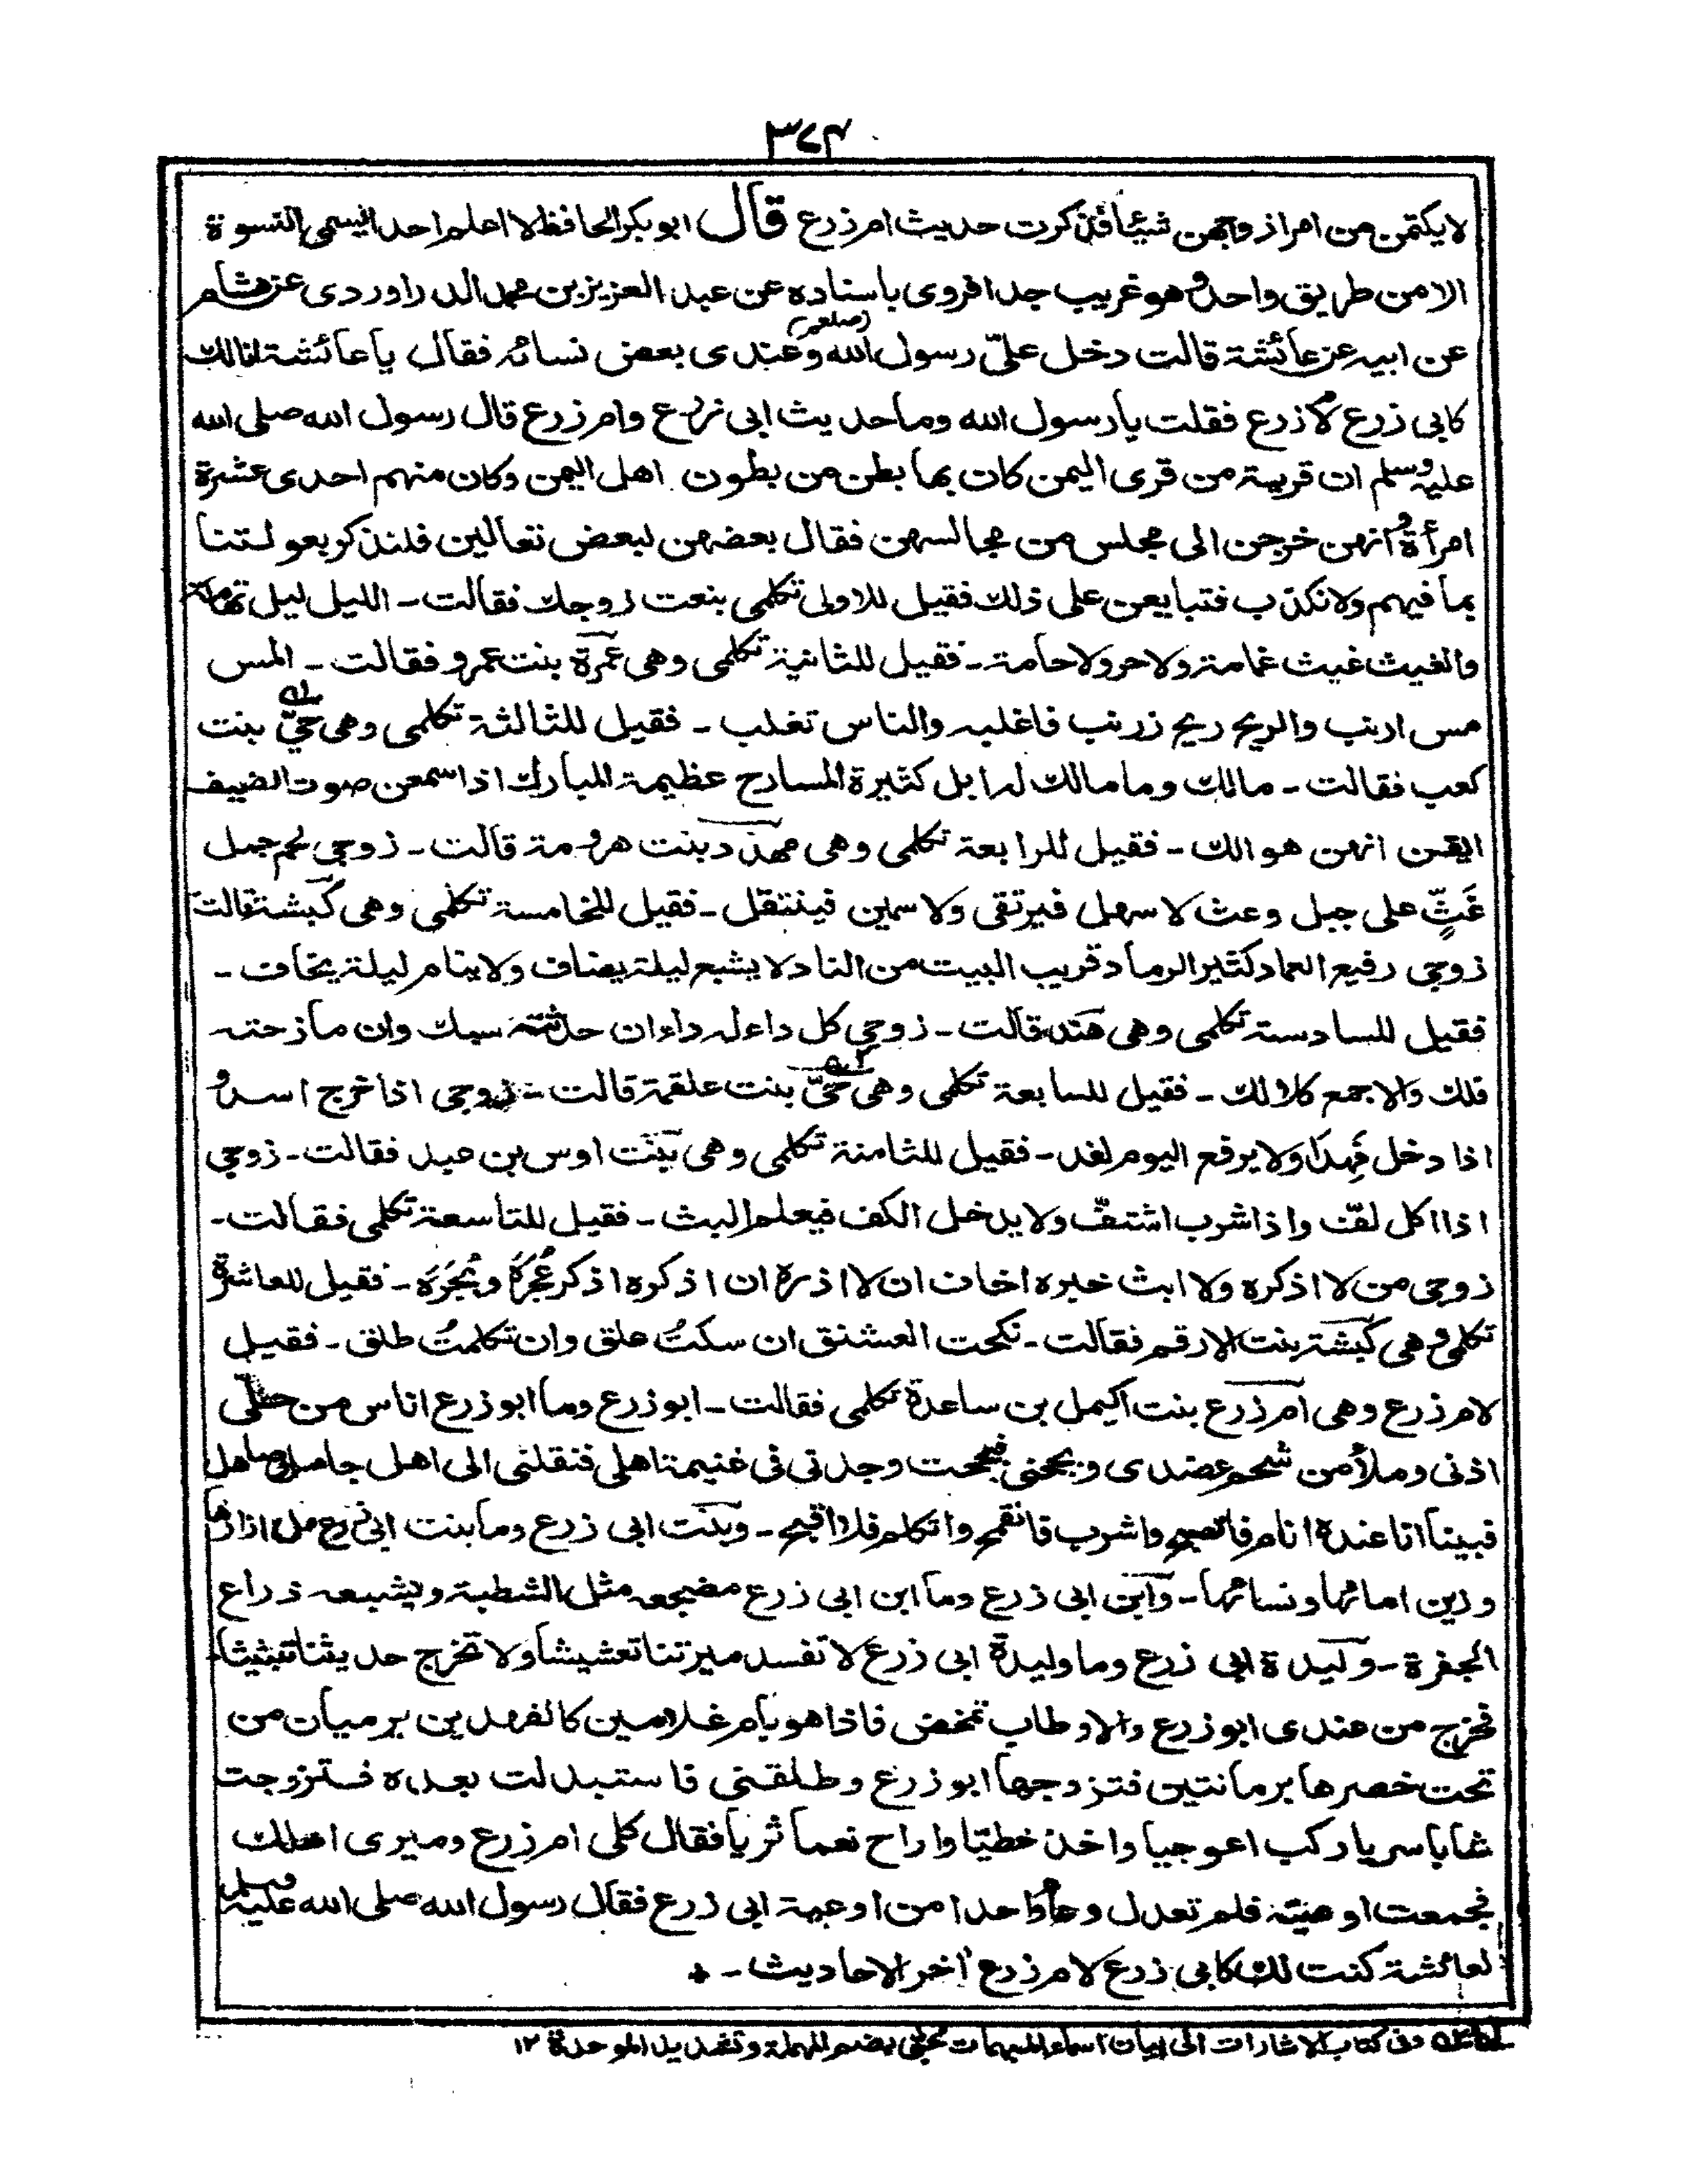 ٣٧٤
لا يكتمن من امر ازواجهن شيئا فذكرت حديث ام زرع قال ابو بكر الحافظ لا اعلم احدا يسمى النسوة
الا من طريق واحد وهو غريب جدا فروى باسناده عن عبد العزيز بن محمد الدراوردى عن هشام
عن ابيه عن عائشة قالت دخل علىّ رسول الله (صلعم) وعندى بعض نسائه فقال يا عائشة انا لك
كابى زرع لام زرع فقلت يا رسول الله وما حديث ابى زرع وام زرع قال رسول الله صلى الله
عليه وسلم ان قرية من قرى اليمن كان بها بطن من بطون اهل اليمن وكان منهم احدى عشرة
امرأة وانهن خرجن الى مجلس من مجالسهن فقال بعضهن لبعض تعالين فلنذكر بعولتنا
بما فيهم ولا نكذب فتبايعن على ذلك فقيل للاولى تكلمى بنعت زوجك فقالت - الليل ليل تهامة
والغيث غيث غمامة ولا حر ولا حامة - فقيل للثانية تكلمى وهى عمرة بنت عمرو فقالت - المس
مس ارنب والريح ريح زرنب فاغلبه والناس تغلب - فقيل للثالثة تكلمى وهى حبّى بنت
كعب فقالت - مالك وما مالك له ابل كثيرة المسارح عظيمة المبارك اذا سمعن صوت الضيف
ايقن انهن هوالك - فقيل للرابعة تكلمى وهى مهدد بنت هرومة قالت - زوجى لحم جمل
غَثٍّ على جبل وعث لا سهل فيرتقى ولا سمين فينتقل - فقيل للخامسة تكلمى وهى كبشة قالت
زوجى رفيع العماد كثير الرماد قريب البيت من الناد لا يشبع ليلة يضاف ولا ينام ليلة يخاف -
فقيل للسادسة تكلمى وهى هند قالت - زوجى كل داء له داء ان حدثته سبك وان مازحته
فلك والا جمع كلا لك - فقيل للسابعة تكلمى وهى حبّى بنت علقمة قالت - زوجى اذا خرج اسد و
اذا دخل فَهِدَ ولا يرفع اليوم لغد - فقيل للثامنة تكلمى وهى بنت اوس بن عبد فقالت - زوجى
اذا اكل لفّ واذا شرب اشتفّ ولا يدخل الكف فيعلم البث - فقيل للتاسعة تكلمى فقالت -
زوجى من لا اذكره ولا ابث خبره اخاف ان لا اذره ان اذكره اذكر عُجَرَه وبُجَرَه - فقيل للعاشرة
تكلمى وهى كبشة بنت الارقم فقالت - نكحت العشنق ان سكتُ علق وان تكلمتُ طلق - فقيل
لام زرع وهى ام زرع بنت اكيمل بن ساعدة تكلمى فقالت - ابو زرع وما ابو زرع اناس من حلى
اذنى وملأ من شحم عضدى وبجحنى فبجحت وجدنى فى غنيمة اهلى فنقلنى الى اهل جامل وصاهل
فبينا انا عنده انام فاتصبح واشرب فاتقمح واتكلم فلا اقبح - وبنت ابى زرع وما بنت ابى زرع ملء ازارها
وزين امائها ونسائها - وابن ابى زرع وما ابن ابى زرع مضجعه مثل الشطبة ويشبعه ذراع
الجفرة - وليدة ابى زرع وما وليدة ابى زرع لا تفسد ميرتنا تعشيشا ولا تخرج حديثنا تبثيثا
فخرج من عندى ابو زرع والاوطاب تمخض فاذا هو بام غلامين كالفهدين يرميان من
تحت خصرها برمانتين فتزوجها ابو زرع وطلقنى فاستبدلت بعده فتزوجت
شابا سريا ركب اعوجيا واخذ خطيّا واراح نعما ثريا فقال كلى ام زرع وميرى اهلك
فجمعت اوعيته فلم تعدل وعاء واحدا من اوعية ابى زرع فقال رسول الله صلى الله عليه وسلم
لعائشة كنت لك كابى زرع لام زرع آخر الاحاديث -
وفى كتاب الاشارات الى بيان اسماء المبهمات حبّى بضم المهملة وتشديد الموحدة ١٢